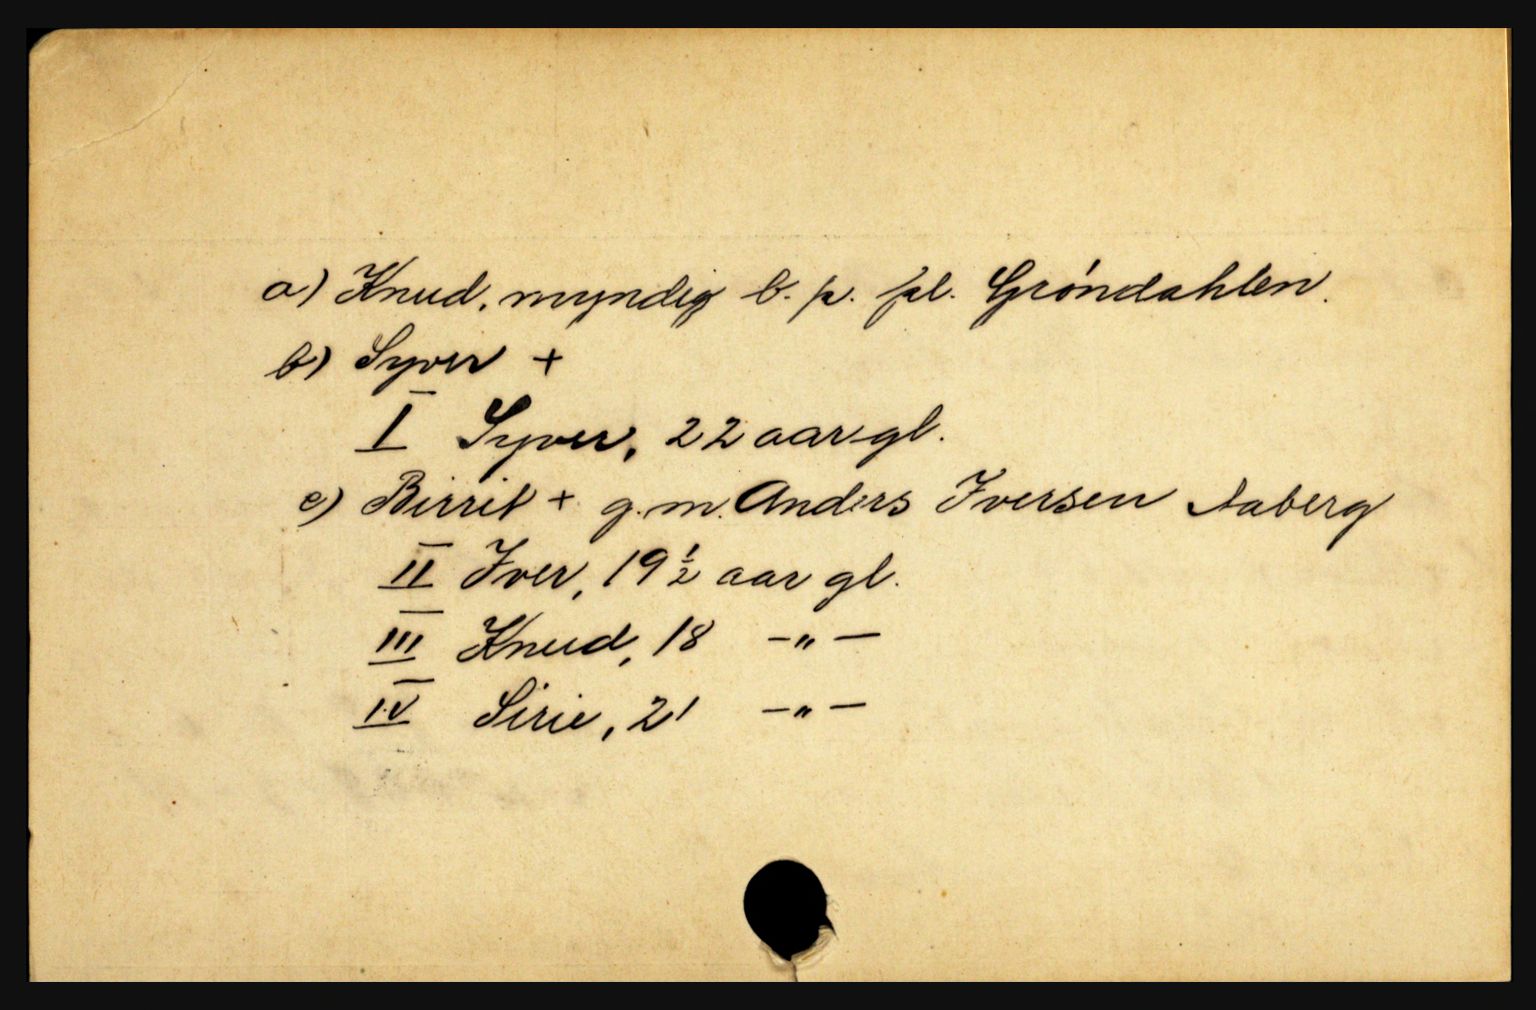 a) Knud, myndig b. p. pl. Gróndahlen.
b) Syver +
I Syver, 22 aar gl.
c) Birrit + g. m. Anders Iversen Aaberg
II Iver, 19 ½ aar gl.
III Knud, 18 -"-
IV Sirie, 21 -"-